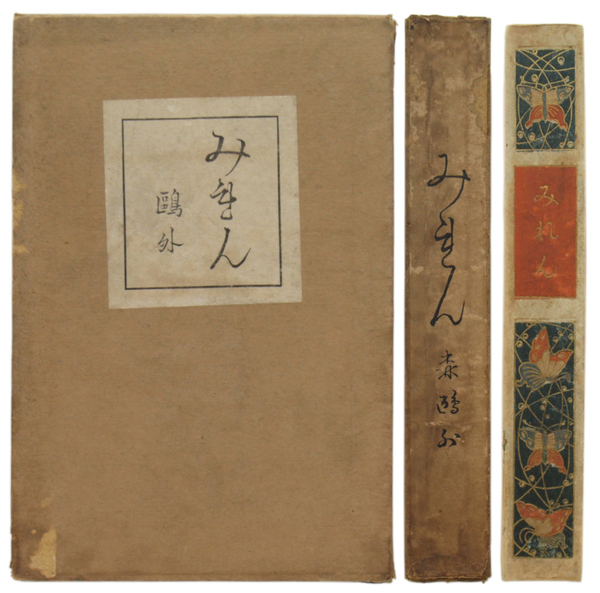 みれん
鷗外
みれん 森鷗外
みれん